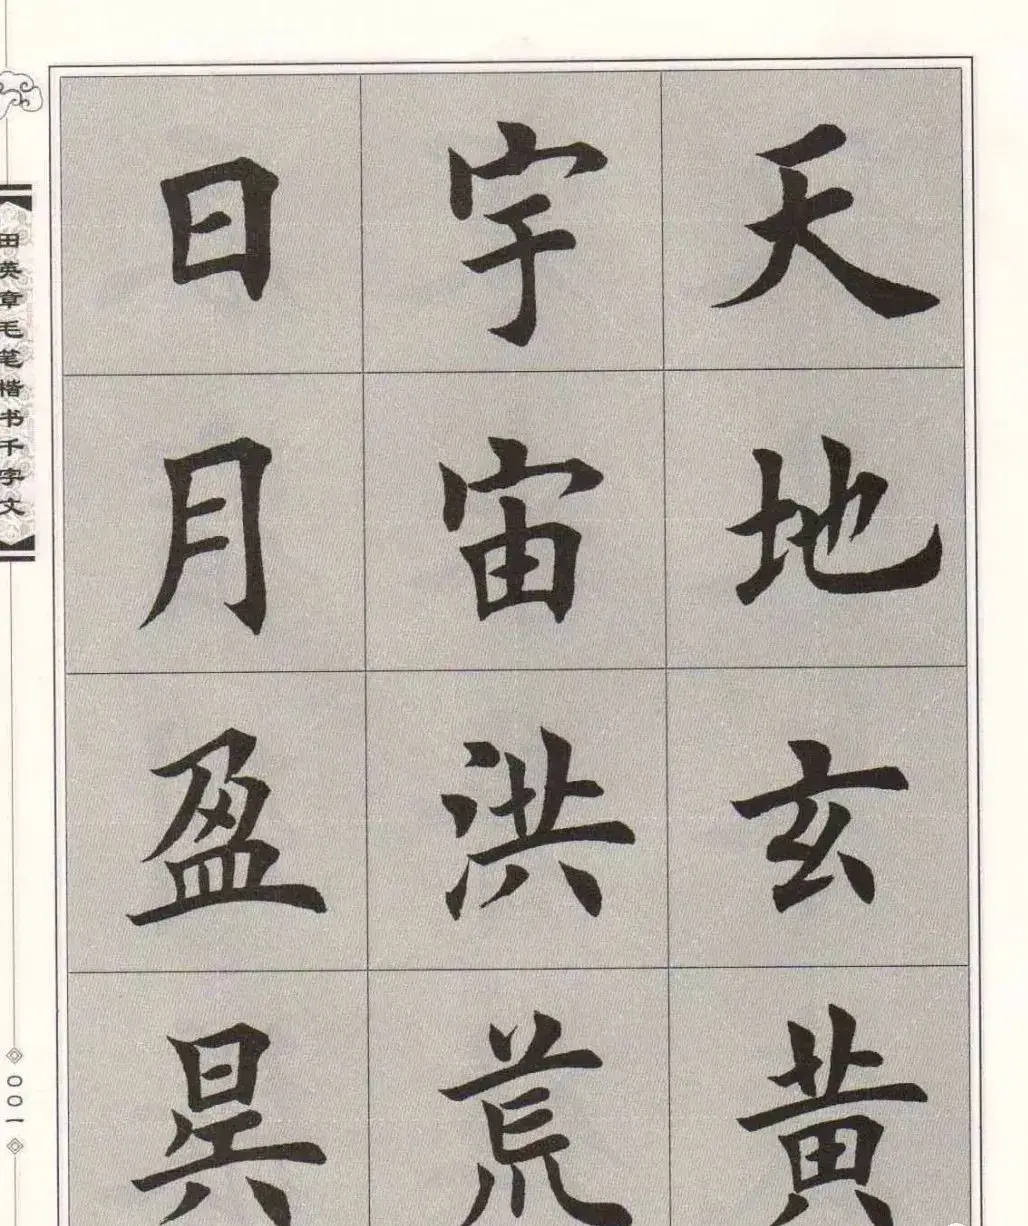 天地玄黄
宇宙洪荒
日月盈昃
田英章毛笔楷书千字文
〇〇一